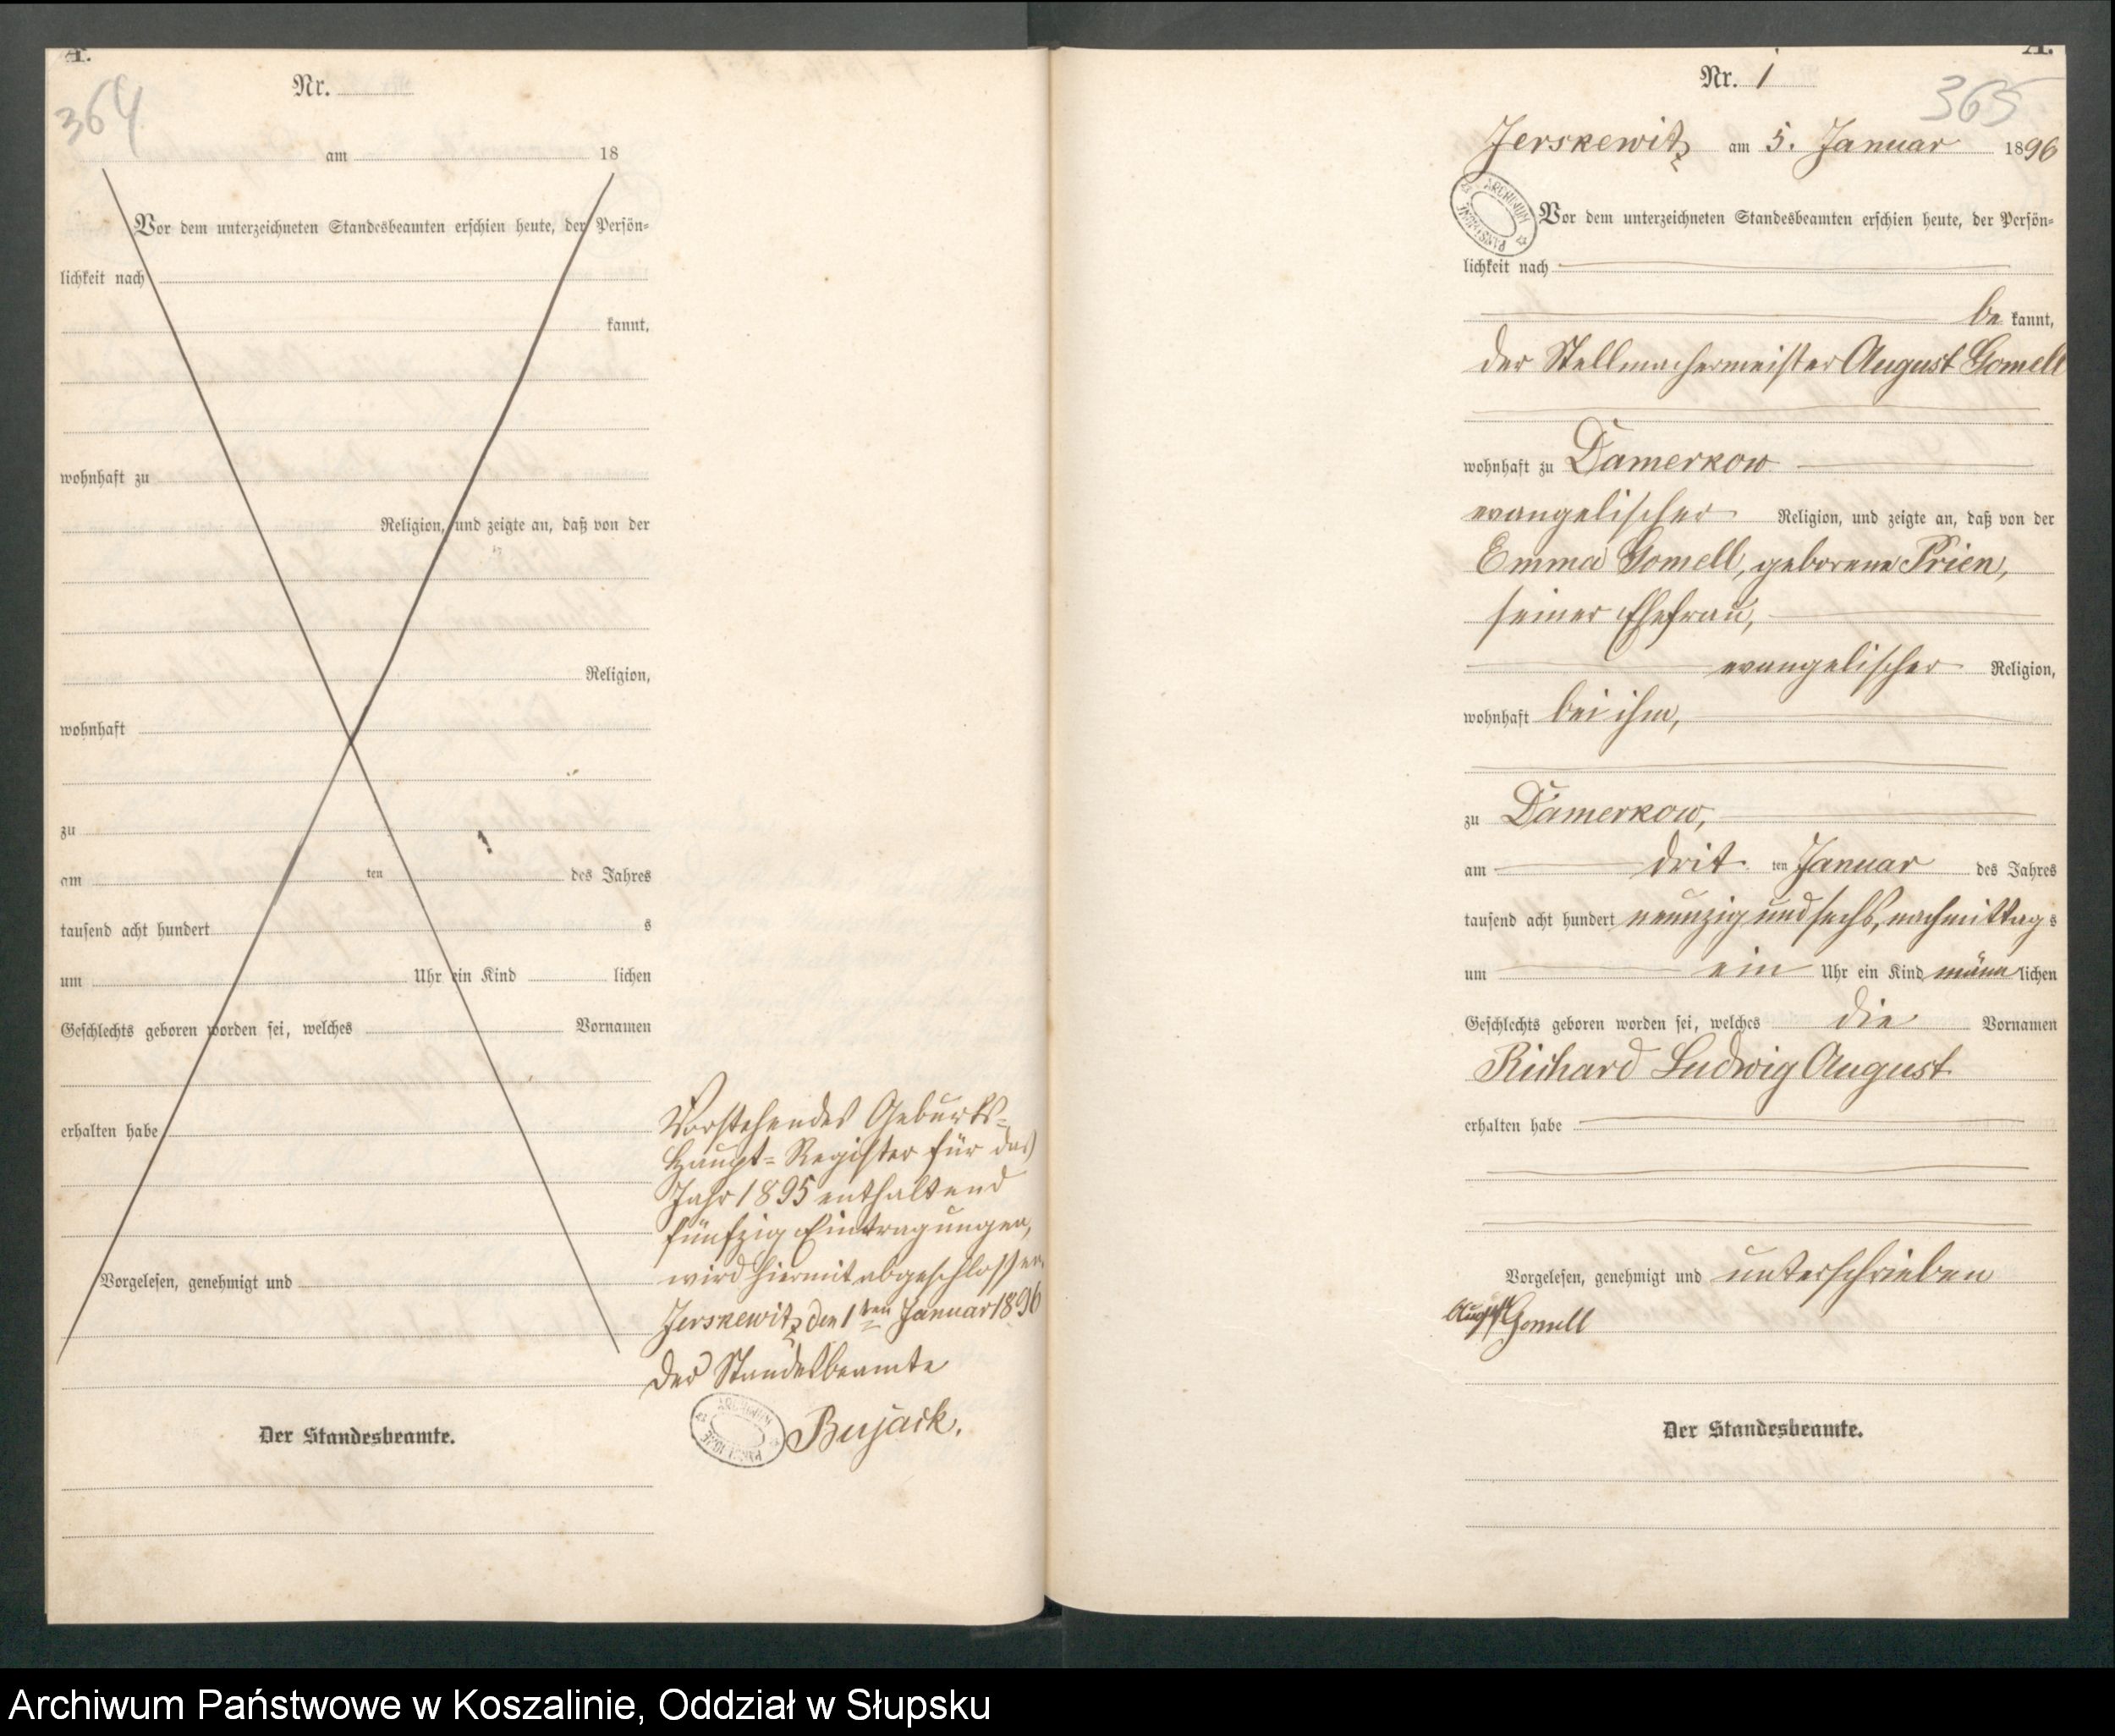 A.
364
Nr.
am 18
Vor dem unterzeichneten Standesbeamten erschien heute, der Persön-
lichkeit nach
kannt,
wohnhaft zu
Religion, und zeigte an, daß von der
Religion,
wohnhaft
zu
am ten des Jahres
tausend acht hundert s
um Uhr ein Kind lichen
Geschlechts geboren worden sei, welches Vornamen
erhalten habe
Vorgelesen, genehmigt und
Der Standesbeamte.
Vorstehendes Geburts-
Haupt-Register für das
Jahr 1895 enthaltend
fünfzig Eintragungen,
wird hiermit abgeschlossen.
Jerskewitz, den 1ten Januar 1896
Der Standesbeamte
Bujack.
ARCHIWUM PAŃSTWOWE
A.
365
Nr. 1
Jerskewitz am 5. Januar 1896
ARCHIWUM PAŃSTWOWE
Vor dem unterzeichneten Standesbeamten erschien heute, der Persön-
lichkeit nach
be kannt,
der Stellmachermeister August Gomell
wohnhaft zu Damerkow
evangelischer Religion, und zeigte an, daß von der
Emma Gomell, geborene Prien,
seiner Ehefrau,
evangelischer Religion,
wohnhaft bei ihm,
zu Damerkow,
am drit ten Januar des Jahres
tausend acht hundert neunzig und sechs, nachmittag s
um ein Uhr ein Kind männ lichen
Geschlechts geboren worden sei, welches die Vornamen
Richard Ludwig August
erhalten habe
Vorgelesen, genehmigt und unterschrieben
August Gomell
Der Standesbeamte.
Archiwum Państwowe w Koszalinie, Oddział w Słupsku